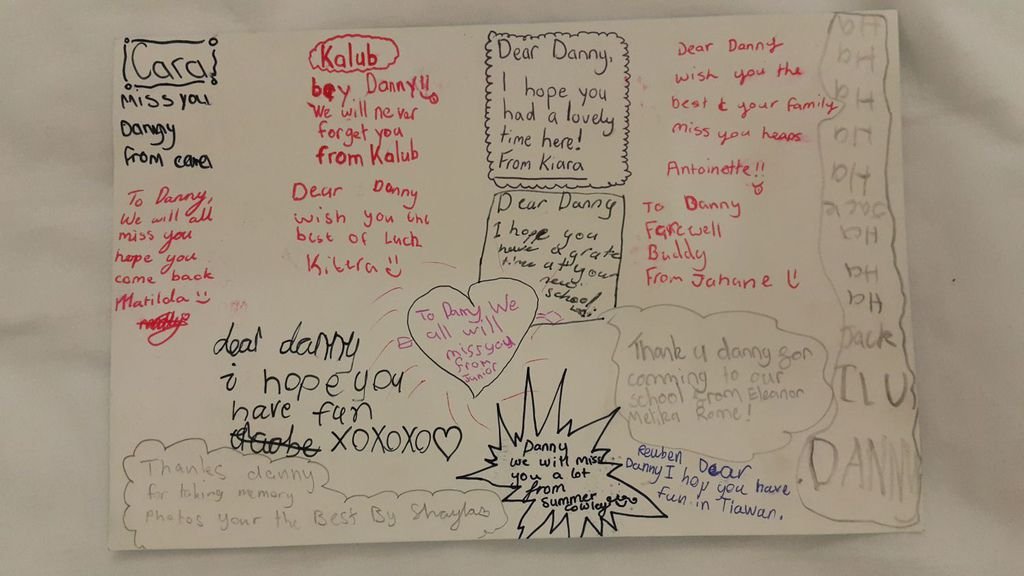 Cara
miss you
Danny
from cara
Kalub
bey Danny!!
We will never
forget you
from Kalub
Dear Danny,
I hope you
had a lovely
time here!
From Kiara
Dear Danny
wish you the
best & your family
miss you heaps
Antoinette!!
To Danny,
We will all
miss you
hope you
come back
Matilda
Dear Danny
wish you the
best of Luck
Dear Danny
I hope you
have a grate
time at your
new
school
To Danny
Farewell
Buddy
From Jahane
To Danny We
all will
miss you
from
Junior
dear danny
i hope you
have fun
XOXOXO
Thank u danny for
comming to our
school From Eleanor
Melika Rome!
Thanks danny
for taking memory
photos your the Best By Shaylas
Danny
we will miss
you a lot
from
Summer
Cowley
Reuben Dear
Danny I hop you have
fun in Tiawan.
Ha
Ha
Ha
Ha
Ha
Jack
Ha
Ha
Ha
Jack
ILU
DANNY